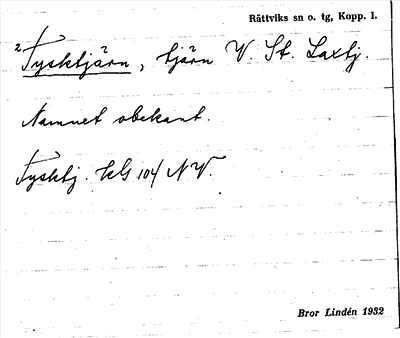 Rättviks sn o. tg, Kopp. l.
2 Tysktjärn, tjärn V. St. Laxtj.
Namnet obekant.
Tysktj. KG 104 NV.
Bror Lindén 1932